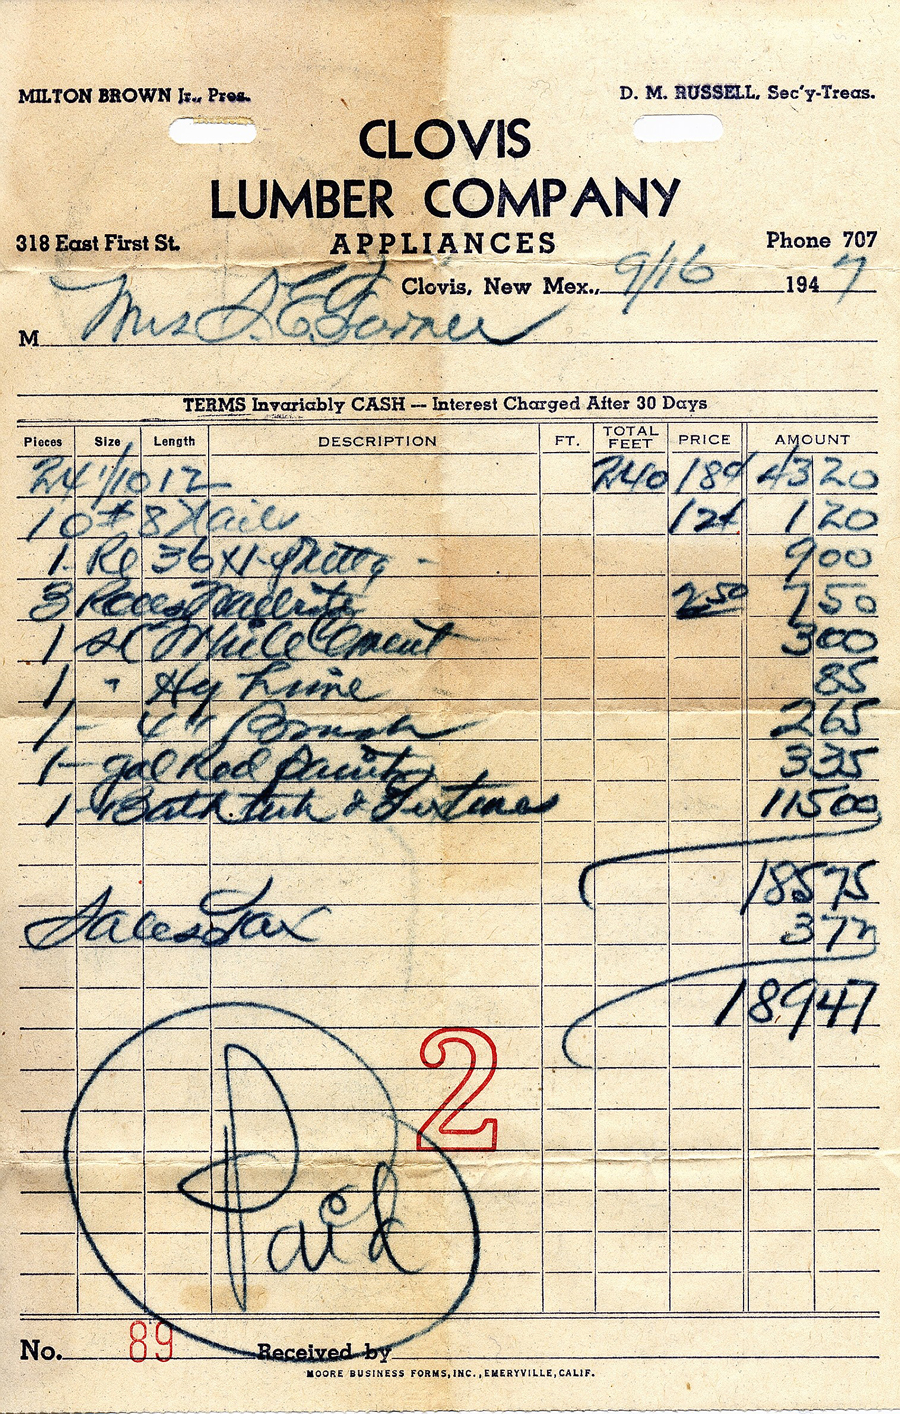 MILTON BROWN Jr., Pres.
D. M. RUSSELL, Sec'y-Treas.
CLOVIS
LUMBER COMPANY
318 East First St.
APPLIANCES
Phone 707
Clovis, New Mex., 9/16 1947
M Mrs
TERMS Invariably CASH — Interest Charged After 30 Days
Pieces Size Length DESCRIPTION FT. TOTAL FEET PRICE AMOUNT
24 1/10 12 240 18¢ 4320
10# 8 Nails 12¢ 120
1 - 36 x 1 - 900
3 2 50 750
1 White Cement 300
1 " Hy Lime 85
1 - 4" Brush 265
1 - gal Red Paint 335
1 - Bath tub & Fixtures 11500
18575
Sales Tax 372
18947
2
Paid
No. 89 Received by
MOORE BUSINESS FORMS, INC., EMERYVILLE, CALIF.